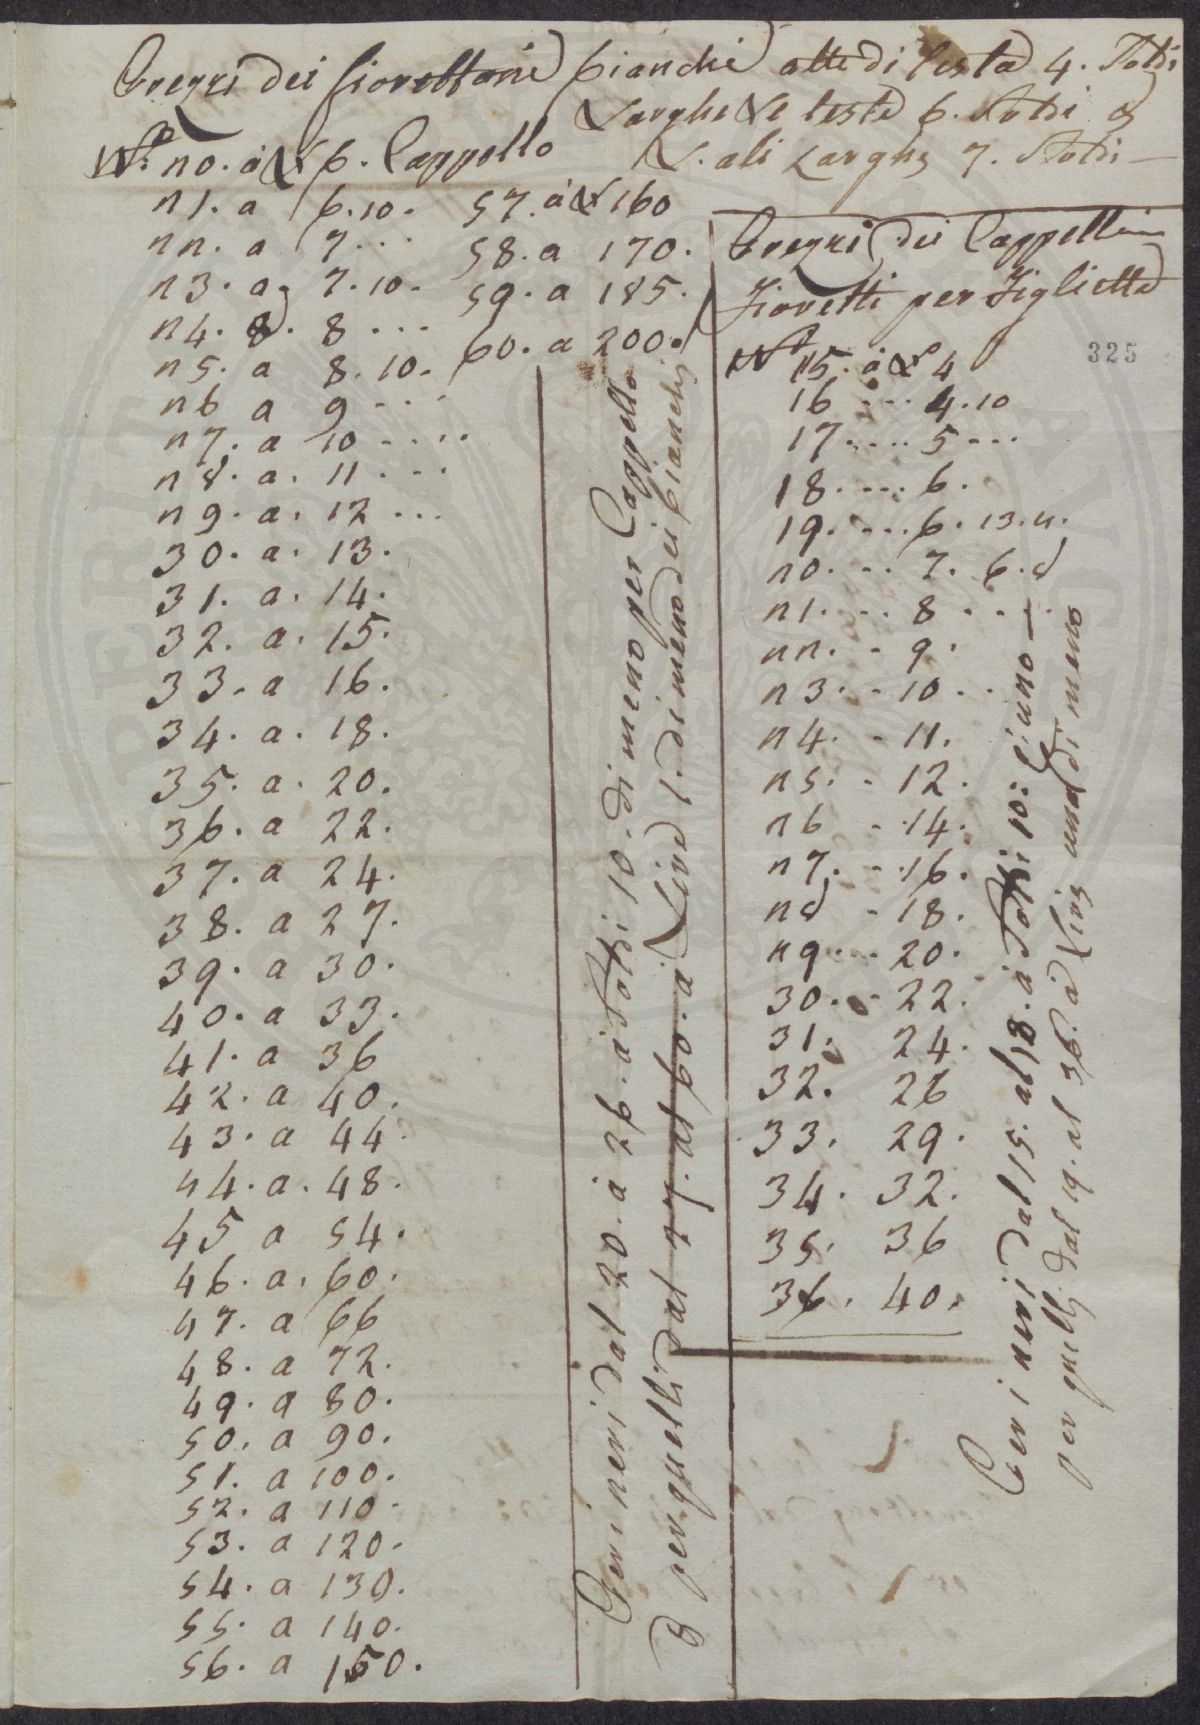 Prezzi dei fiorettoni bianchi alte di testa 4. Soldi
Larghe di testa 6. Soldi e
ali Larghe 7. Soldi
N.º 20. a £ 6. Cappello
21. a 6.10.
22. a 7...
23. a 7.10.
24. a. 8...
25. a 8.10.
26 a 9...
27. a 10....
28. a. 11...
29. a. 12...
30. a. 13.
31. a. 14.
32. a. 15.
33. a 16.
34. a. 18.
35. a. 20.
36. a 22.
37. a 24.
38. a 27.
39. a 30.
40. a 33.
41. a 36
42. a 40.
43. a 44
44. a. 48.
45 a 54.
46. a. 60.
47. a 66
48. a 72.
49. a 80.
50. a 90.
51. a 100.
52. a 110.
53. a 120.
54. a 130.
55. a 140.
56. a 150.
57. a £ 160
58. a 170.
59. a 185.
60. a 200.
Per i neri dal 20. a 26. a Soldi 10. di meno per Cappello
e per quelli dal 27. al 60. a Lire 1. di meno dei bianchi
Prezzi dei Cappellini
Fioretti per Figlietta
325
N.º 15. a £ 4
16 ... 4.10
17.... 5...
18.... 6.
19.... 6.13.4.
20... 7. 6.8
21... 8....
22.. 9.
23.. 10..
24. . 11.
25.. 12.
26 . 14.
27. . 16.
28 . 18.
29... 20.
30.. 22.
31. 24.
32. 26
33. 29.
34. 32.
35. 36
36. 40.
Per i neri dal 15. al 18. a Soldi 10: l'uno
per quelli dal 19. al 36. a Lire una di meno